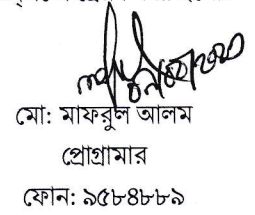 মো: মাফরুল আলম
প্রোগ্রামার
ফোন: ৯৫৮৪৮৮৯